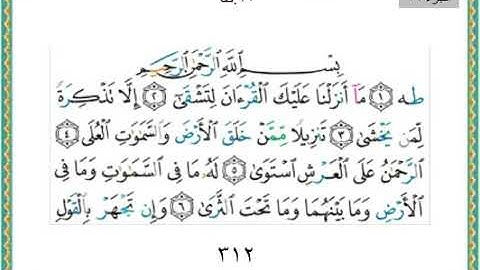 بِسْمِ اللَّهِ الرَّحْمَٰنِ الرَّحِيمِ
طه ١ مَا أَنزَلْنَا عَلَيْكَ الْقُرْءَانَ لِتَشْقَىٰ ٢ إِلَّا تَذْكِرَةً
لِّمَن يَخْشَىٰ ٣ تَنزِيلًا مِّمَّنْ خَلَقَ الْأَرْضَ وَالسَّمَٰوَٰتِ الْعُلَى ٤
الرَّحْمَٰنُ عَلَى الْعَرْشِ اسْتَوَىٰ ٥ لَهُ مَا فِي السَّمَٰوَٰتِ وَمَا فِي
الْأَرْضِ وَمَا بَيْنَهُمَا وَمَا تَحْتَ الثَّرَىٰ ٦ وَإِن تَجْهَرْ بِالْقَوْلِ
٣١٢